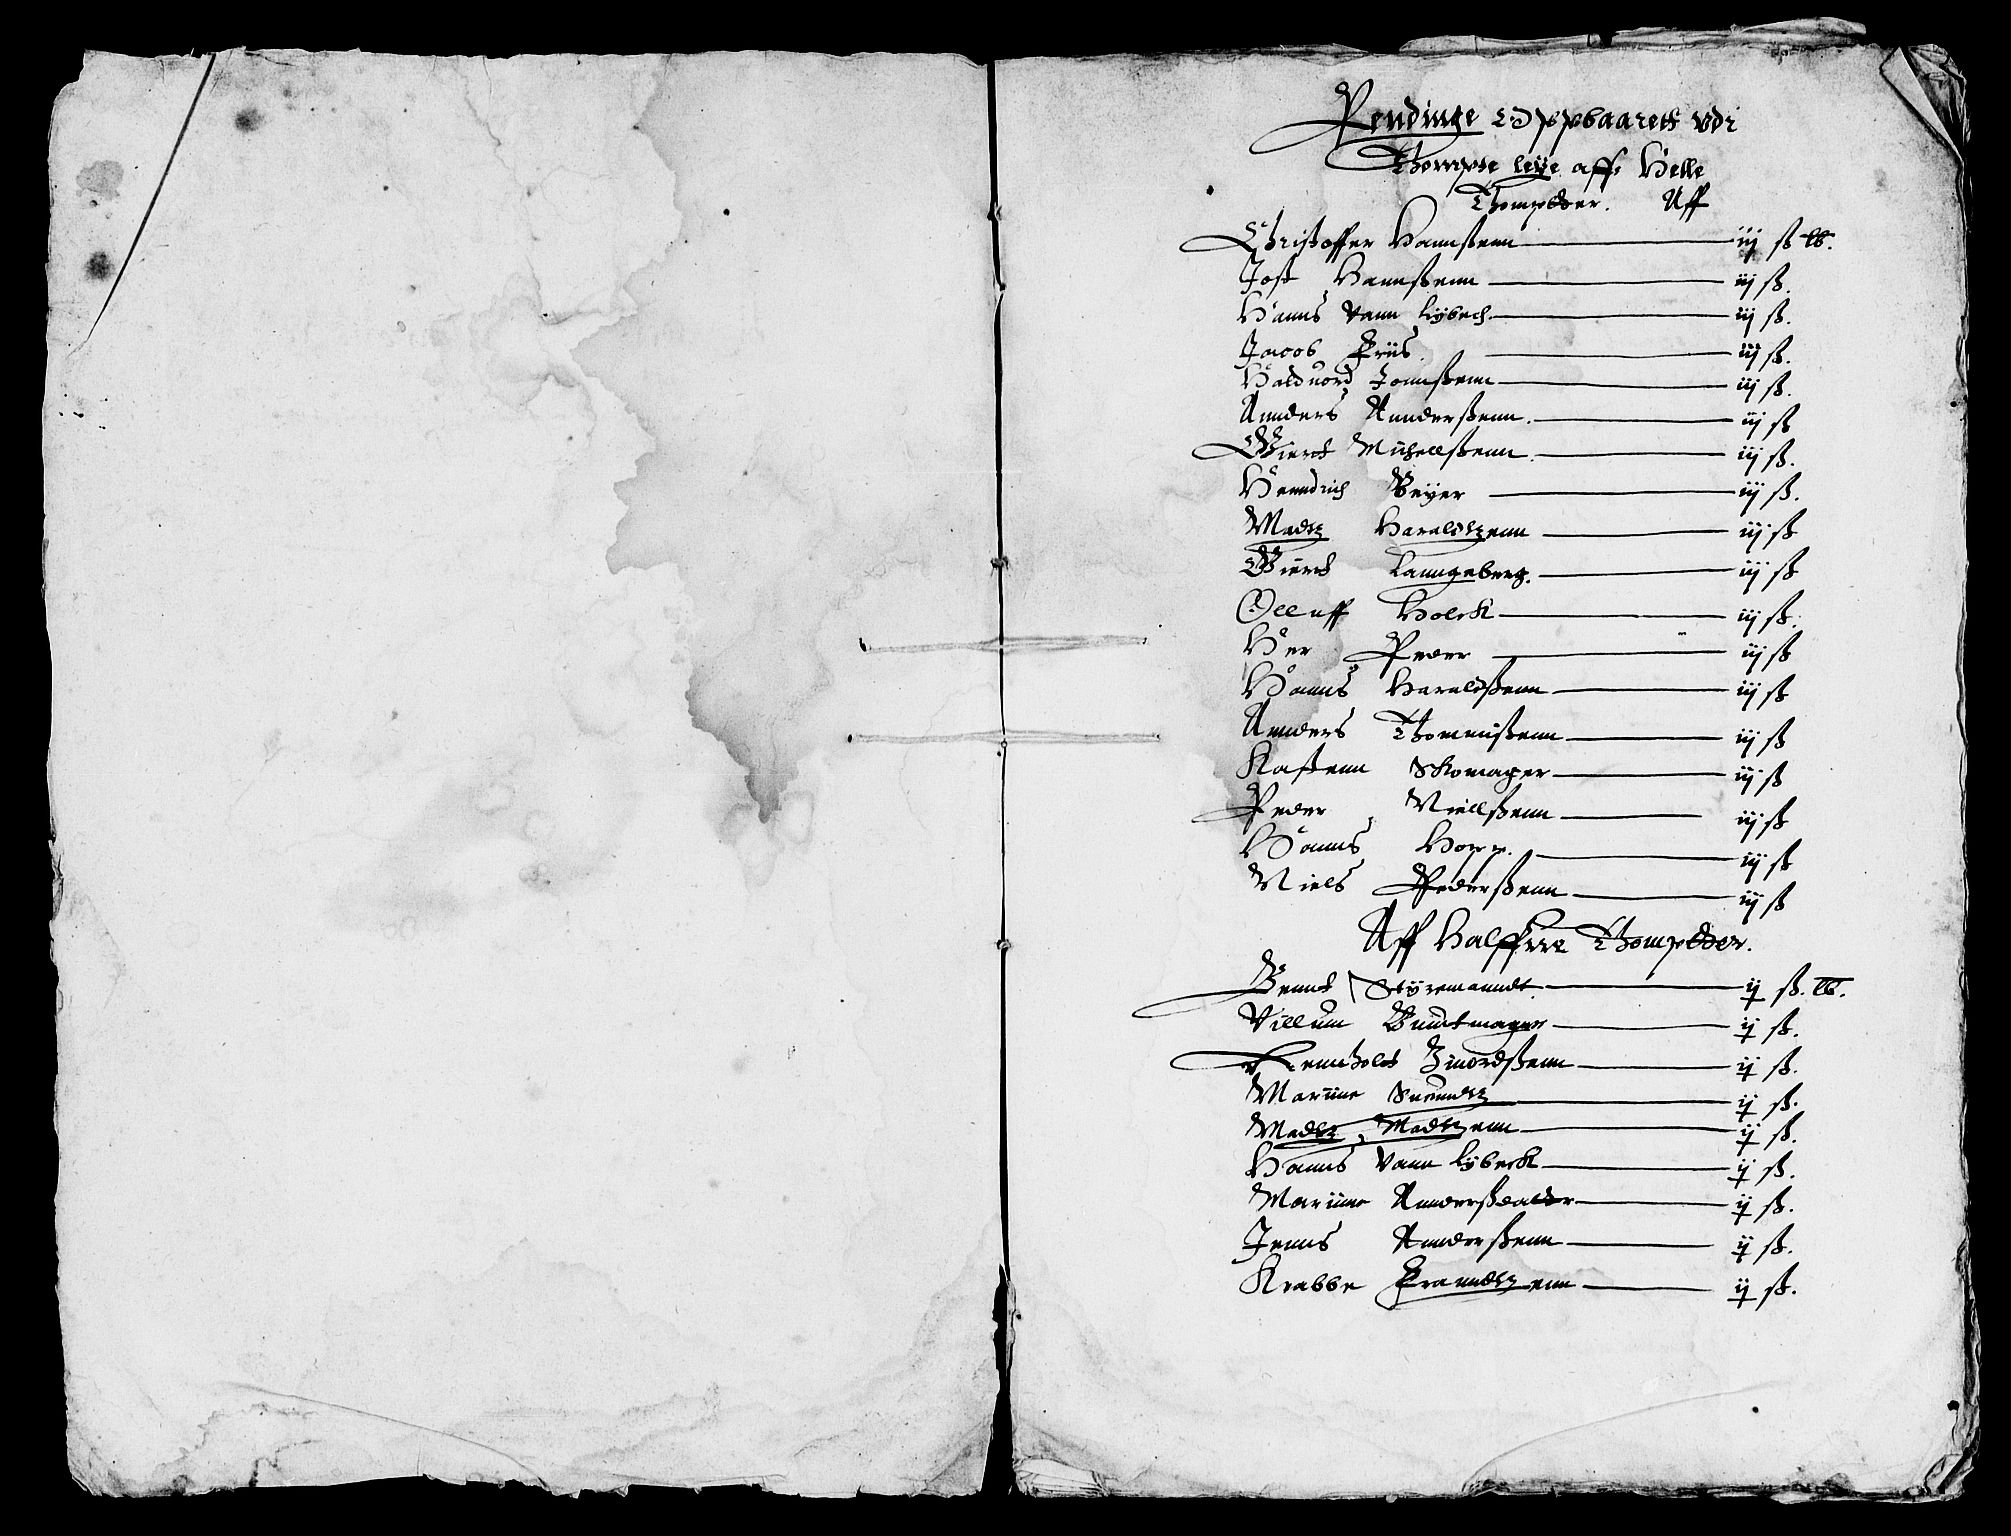 Pendinge Oppbaarett vdi
Thompte leye aff Helle
Thompter. Aff
Christoffer Hannßenn iij ß lb.
Jost Hannßenn iij ß.
Hanns vann Lybech iij ß.
Jacob Friis iij ß.
Haldnord Jonnßenn iij ß.
Annders Annderßenn. iij ß
Giertt Michellßenn. iij ß.
Henndrich Beyer iij ß.
Madtz Haraldtzenn iij ß
Giertt Lanngeberg. iij ß
Olluff Holck iij ß.
Her Peder iij ß
Hanns Haraldßenn iij ß
Annders Thommißenn iij ß
Kastenn Skomager iij ß
Peder Niellßenn iij ß
Hanns Hopp. iij ß
Niels Pederßenn iij ß
Aff Halffue Thompter.
Bennt Styremanndt ij ß. lb.
Villum Bundtmager ij ß.
Rennholdt Jfuordßenn ij ß.
Marinne Suenndtz ij ß.
Madtz Madtzenn ij ß.
Hanns vann Lybeck ij ß.
Marinne Annderßdatter ij ß.
Jenns Annderßenn ij ß.
Krabbe Franndtzenn ij ß.